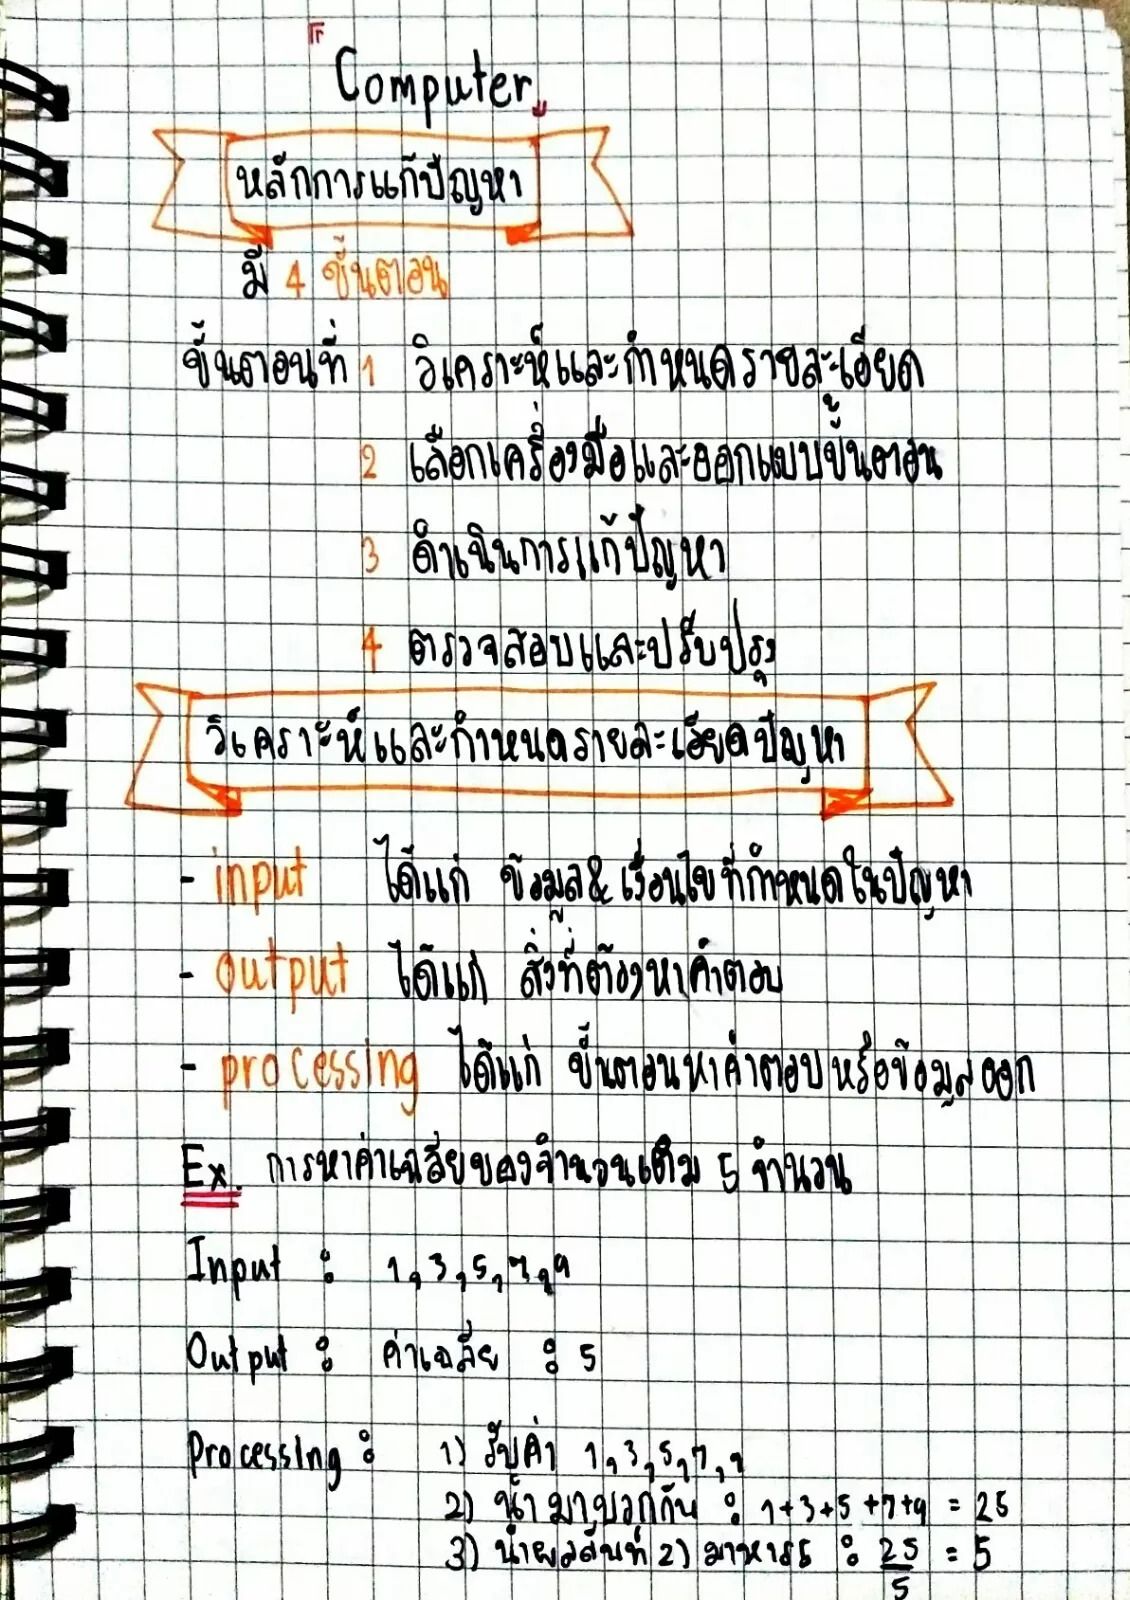 Computer
หลักการแก้ปัญหา
มี 4 ขั้นตอน
ขั้นตอนที่ 1 วิเคราะห์และกำหนดรายละเอียด
2 เลือกเครื่องมือและออกแบบขั้นตอน
3 ดำเนินการแก้ปัญหา
4 ตรวจสอบและปรับปรุง
วิเคราะห์และกำหนดรายละเอียดปัญหา
- input ได้แก่ ข้อมูล & เงื่อนไขที่กำหนดในปัญหา
- output ได้แก่ สิ่งที่ต้องหาคำตอบ
- processing ได้แก่ ขั้นตอนหาคำตอบหรือข้อมูลออก
Ex. การหาค่าเฉลี่ยของจำนวนเต็ม 5 จำนวน
Input : 1,3,5,7,9
Output : ค่าเฉลี่ย : 5
Processing : 1) รับค่า 1,3,5,7,9
2) นำมาบวกกัน : 1+3+5+7+9 = 25
3) นำผลลัพท์ 2) มาหาร 5 : 25/5 = 5